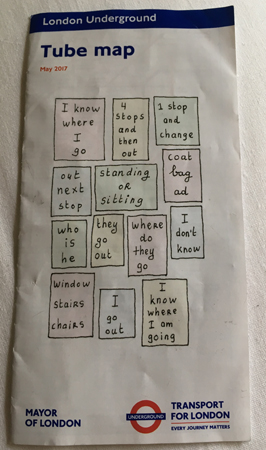 London Underground
Tube map
May 2017
I know
where
I
go
4
stops
and
then
out
1 stop
and
change
out
next
stop
standing
or
sitting
coat
bag
ad
who
is
he
they
go
out
where
do
they
go
I
don't
know
window
stairs
chairs
I
go
out
I
know
where
I am
going
MAYOR
OF LONDON
UNDERGROUND
TRANSPORT
FOR LONDON
EVERY JOURNEY MATTERS